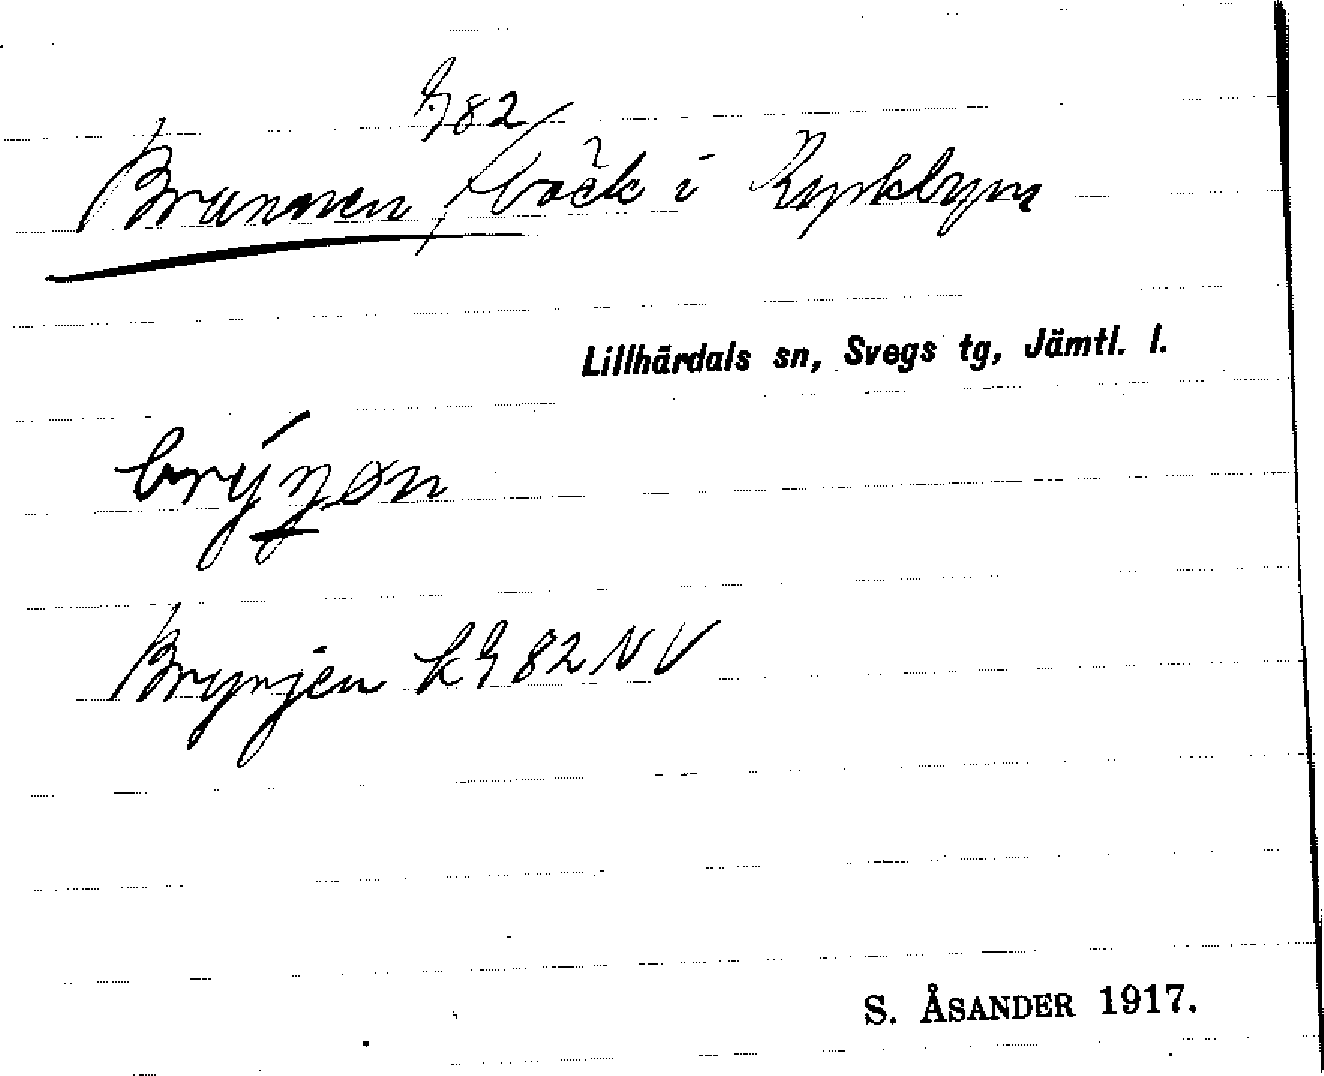 G82
Brunnen, bäck i Kyrkbyn
Lillhärdals sn, Svegs tg, Jämtl. l.
Brynjen kG 82 NV
S. ÅSANDER 1917.